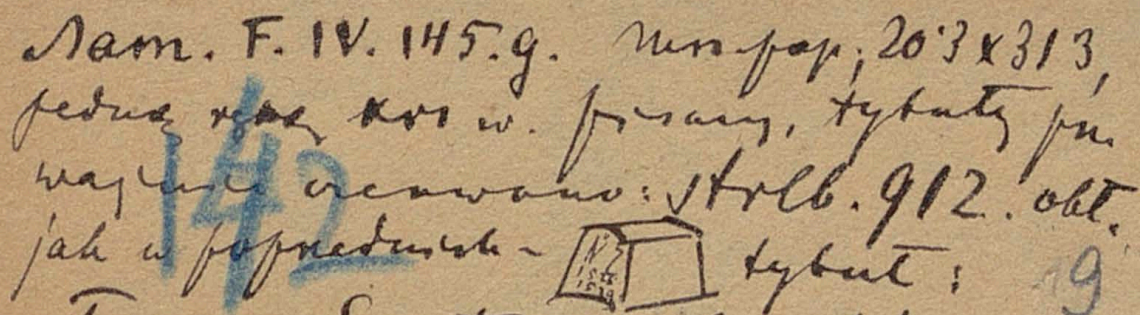 Łam. F. IV. 145. g. Mss. pap, 20·3 x 313,
jedną ręką XVI w. pisany, tytuły prze
ważnie czerwono: strlb. 912. obł.
jak w poprzednich - tytuł:
142
9